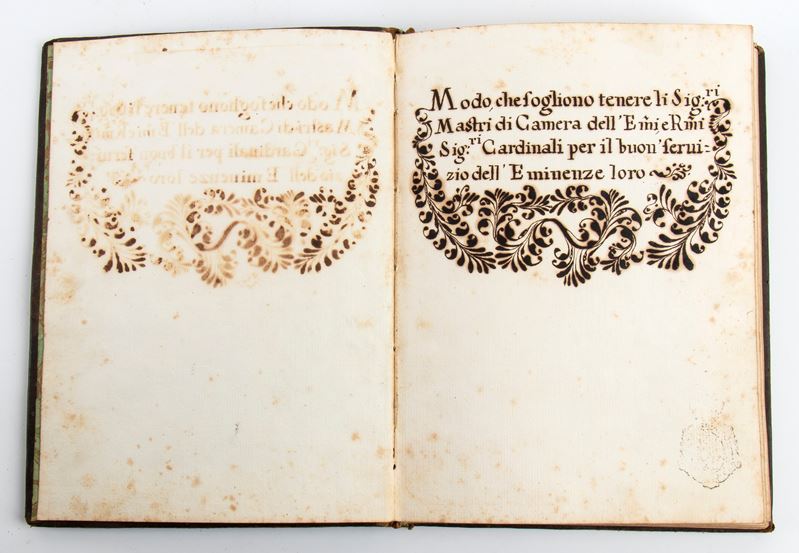 Modo, che sogliono tenere li Sig:ri
Mastri di Camera dell' Em̃i e Rm̃i
Sig:ri Cardinali per il buon' serui-
zio dell' Eminenze loro